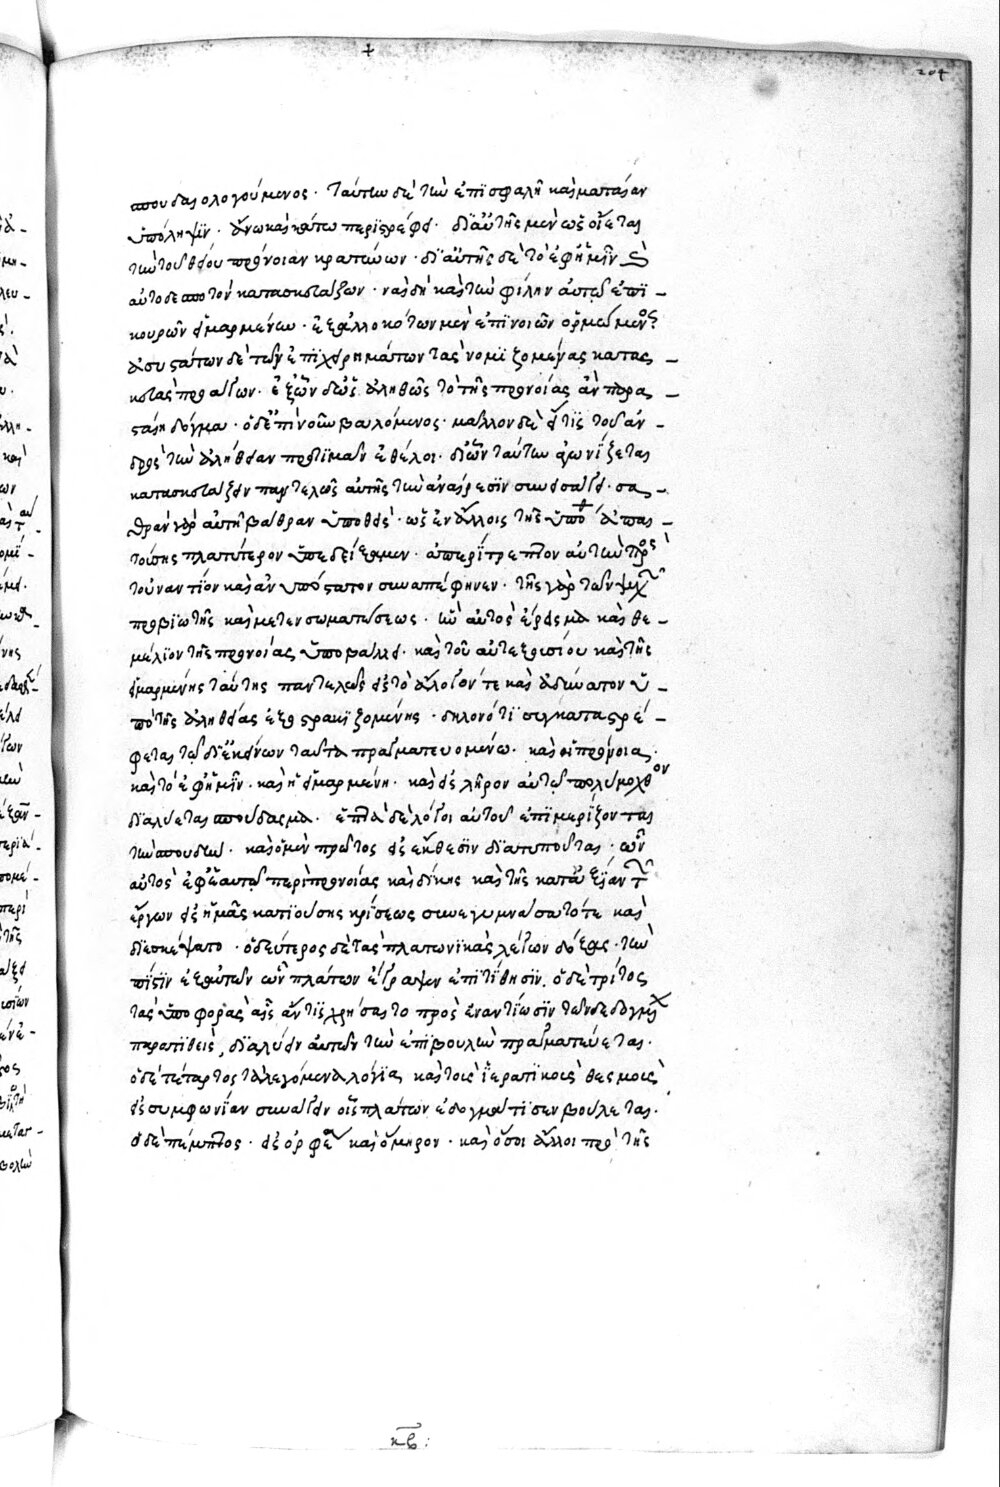 204
σπουδαιολογούμενος· ταύτην δὲ τὴν ἐπισφαλῆ καὶ ματαίαν
ὑπόληψιν· ἄνω καὶ κάτω περιστρέφει· δι' αὐτῆς μὲν ὡς οἴεται
τὴν τοῦ θεοῦ πρόνοιαν κρατύνων· δι' αὐτῆς δὲ τὸ ἐφ' ἡμῖν καὶ
αὐτοδέσποτον κατασκευάζων· ναὶ δὴ καὶ τὴν φίλην αὐτῷ ἐπι-
κουρῶν εἱμαρμένην· ἐξ ἑάλλοκότων μὲν ἐπινοιῶν ὁρμώμενος
ἀσυστάτων δὲ τῶν ἐπιχειρημάτων τὰς νομιζομένας κατας-
κευὰς προάγων· ἐξ ὧν δ' ὡς ἀληθῶς τὸ τῆς προνοίας ἀνπερα-
σταίη δόγμα· οὐδ' ἐπὶ νοῦν βαλόμενος· μᾶλλον δὲ εἴ τις τοῦ ἀν-
δρὸς τὴν ἀλήθειαν προτιμᾶν ἐθέλοι· δι' ὧν ταύτην ἀγωνίζεται
κατασκευάζειν παντελῶς αὐτῆς τὴν ἀναίρεσιν συνεισάγει· σα-
θρὰν γὰρ αὐτῇ βάθραν ὑποθεὶς· ὡς ἐν ἄλλοις τῆς ὑπὸ ἁπας-
τοίσης πλατύτερον ὑπεδείξαμεν· ἀπερίτρεπτον αὐτὴν πρὸς
τοὐναντίον καὶ ἀνυπόστατον συναπέφηνεν· τῆς γὰρ τῶν ψυχῶν
προβιωτῆς καὶ μετενσωματώσεως· ἣν αὐτὸς ἔρεισμα καὶ θε-
μέλιον τῆς προνοίας ὑποβάλλει· καὶ τοῦ αὐτεξουσίου καὶ τῆς
εἱμαρμένης ταύτης παντελῶς εἰς τὸ ἄλογόν τε καὶ ἀδύνατον ὑ-
πὸ τῆς ἀληθείας ἐξοστρακιζομένης· δηλονότι συγκαταστρέ-
φεται τῷ δι' ἐκείνων ταῦτα πραγματευομένῳ· καὶ ἡ πρόνοια·
καὶ τὸ ἐφ' ἡμῖν· καὶ ἡ εἱμαρμένη· καὶ εἰς λῆρον αὐτῷ πολύμοχθον
διαλύεται σπούδασμα· ἑπτὰ δὲ λόγοι αὐτοῦ ἐπιμερίζονται
τὴν σπουδὴν· καὶ ὁ μὲν πρῶτος εἰς ἔκθεσιν διατυποῦται· ὧν
αὐτὸς ἐφ' ἑαυτῷ περὶ προνοίας καὶ δίκης καὶ τῆς κατ' ἀξίαν τῶν
ἔργων εἰς ἡμᾶς κατιούσης κρίσεως συνεγυμνάσατό τε καὶ
διεσκέψατο· ὁ δεύτερος δὲ τὰς πλατωνικὰς λέγων δόξας· τὴν
πίστιν ἐξ αὐτῶν ὧν πλάτων ἔγραψεν ἐπιτίθησιν· ὁ δὲ τρίτος
τὰς ὑποφορὰς αἷς ἄν τις χρήσαιτο πρὸς ἐναντίωσιν τῶν δεδογμένων
παρατιθεὶς, διαλύειν αὐτῶν τὴν ἐπιβουλὴν πραγματεύεται·
ὁ δὲ τέταρτος τὰ λεγόμενα λόγια καὶ τοὺς ἱερατικοὺς θεσμοὺς
εἰς συμφωνίαν συνάγειν οἷς πλάτων ἐδογμάτισεν βούλεται·
ὁ δὲ πέμπτος· εἰς ὀρφέα καὶ ὅμηρον· καὶ ὅσοι ἄλλοι πρὸ τῆς
κβ: